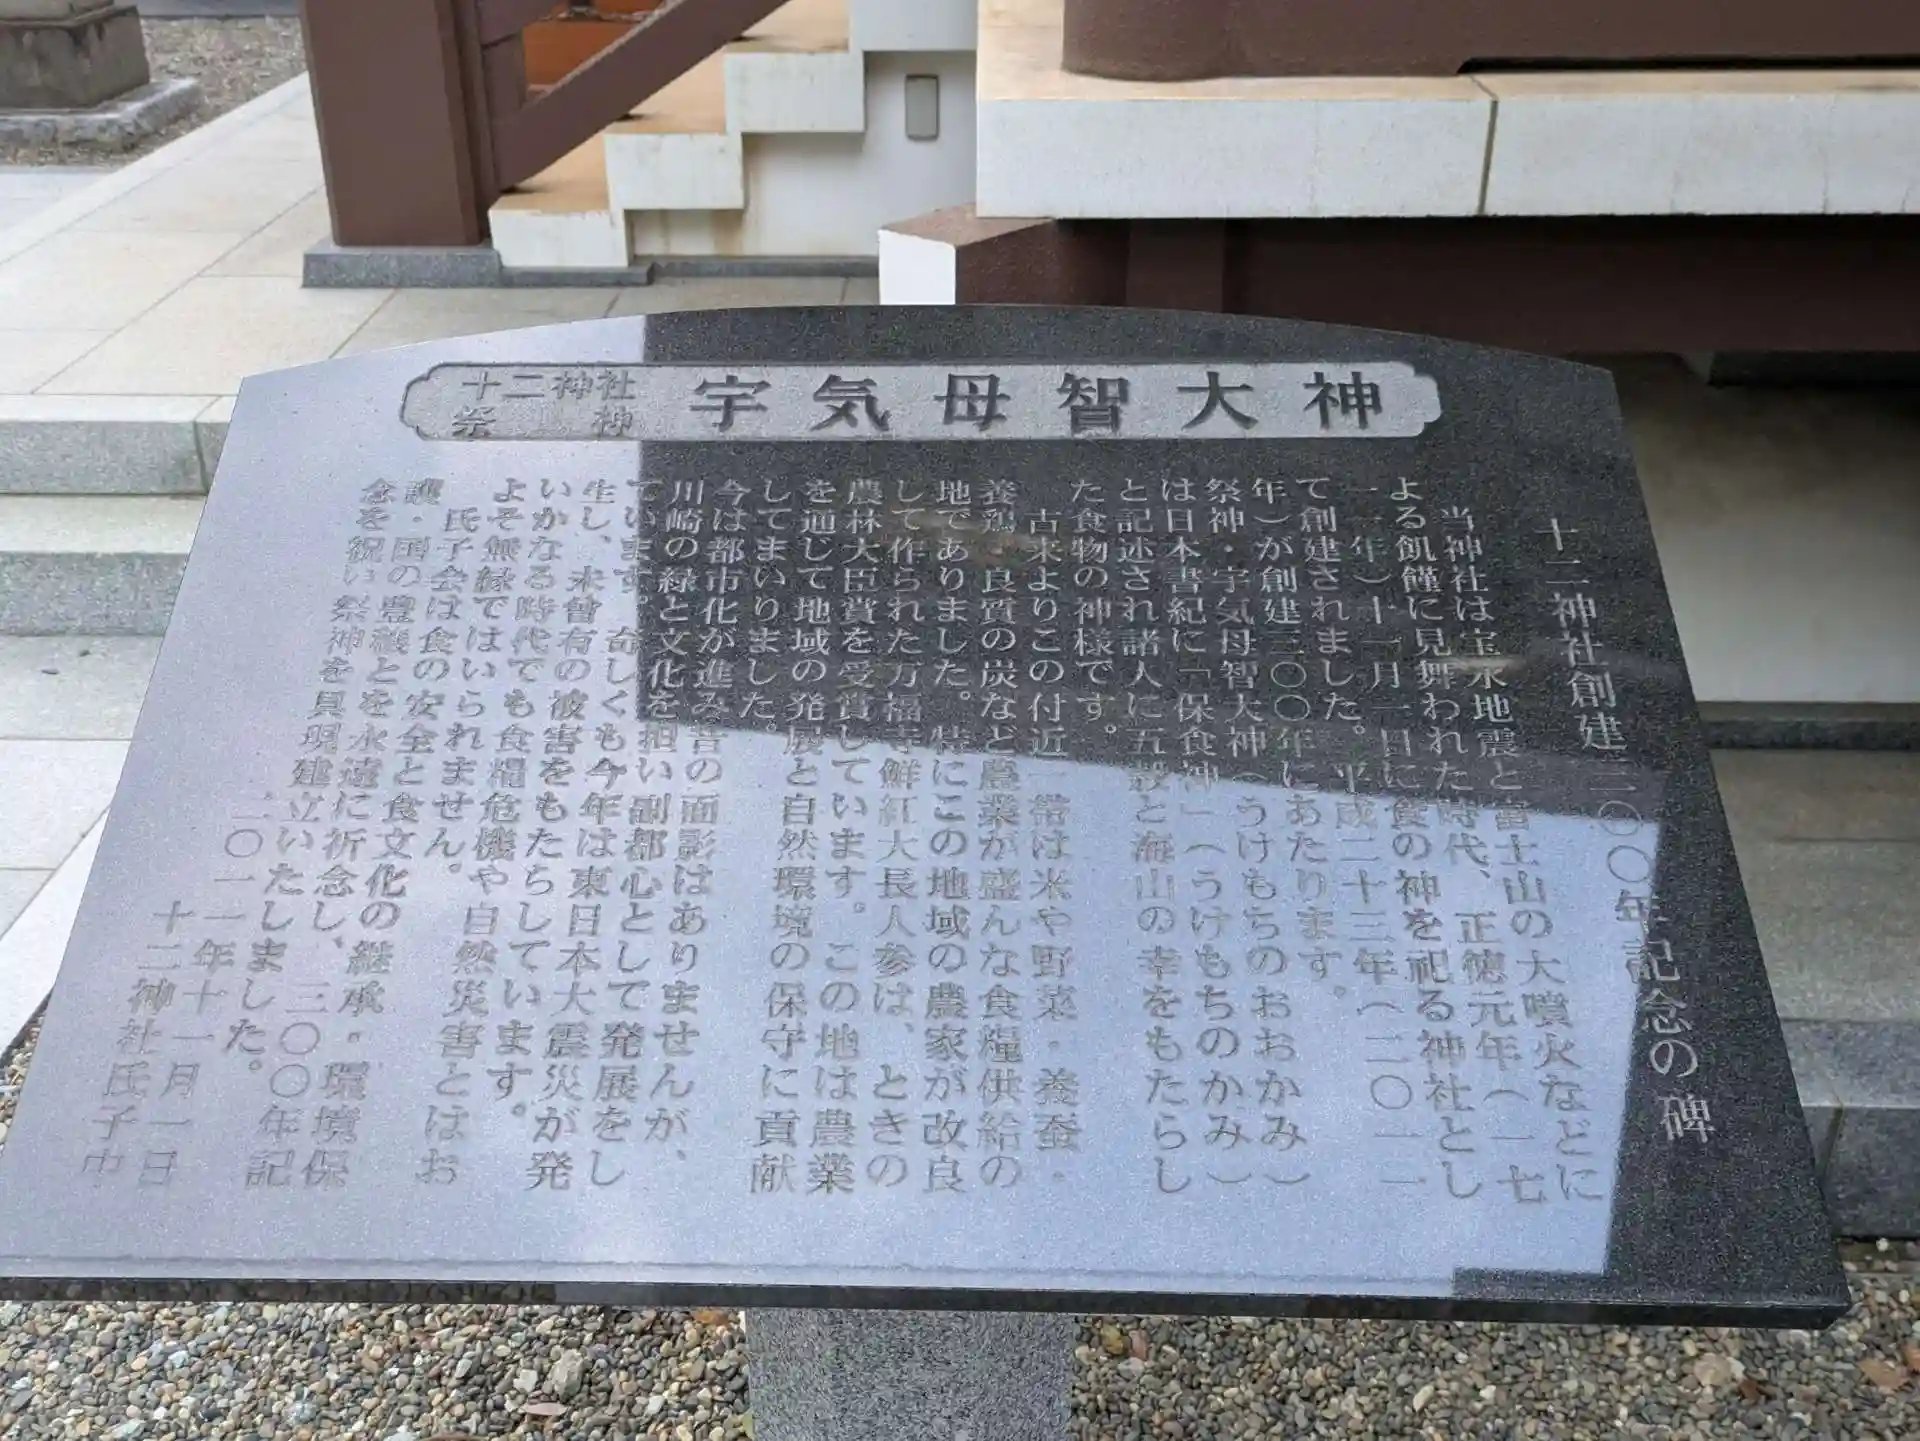 十二神社
祭神
宇気母智大神
十二神社創建三〇〇年記念の碑
当神社は宝永地震と富士山の大噴火などに
よる飢饉に見舞われた時代、正徳元年（一七
一一年）十一月一日に食の神を祀る神社とし
て創建されました。平成二十三年（二〇一一
年）が創建三〇〇年にあたります。
祭神・宇気母智大神（うけもちのおおかみ）
は日本書紀に「保食神」（うけもちのかみ）
と記述され諸人に五穀と海山の幸をもたらし
た食物の神様です。
古来よりこの付近一帯は米や野菜・養蚕・
養鶏・良質の炭など農業が盛んな食糧供給の
地でありました。特にこの地域の農家が改良
して作られた万福寺鮮紅大長人参は、ときの
農林大臣賞を受賞しています。この地は農業
を通じて地域の発展と自然環境の保守に貢献
してまいりました。
今は都市化が進み昔の面影はありませんが、
川崎の緑と文化を担い副都心として発展をし
ています。奇しくも今年は東日本大震災が発
生し、未曾有の被害をもたらしています。
いかなる時代でも食糧危機や自然災害とはお
よそ無縁ではいられません。
氏子会は食の安全と食文化の継承・環境保
護・国の豊穣とを永遠に祈念し、三〇〇年記
念を祝い祭神を具現建立いたしました。
二〇一一年十一月一日
十二神社氏子中